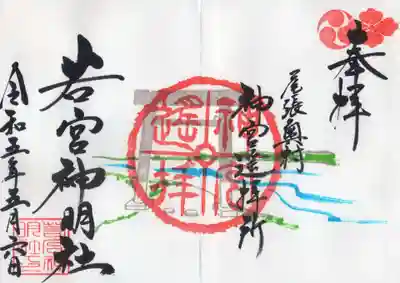 奉拝
尾張奥村
神宮遥拝所
神宮遥拝
若宮神明社
令和五年五月六日